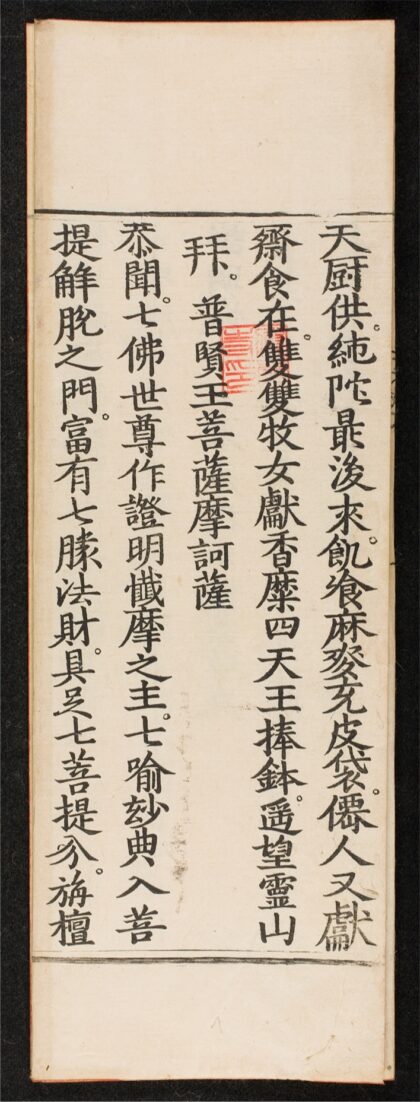 天厨供。純陁最後來。飢飡麻麥充皮袋。僊人又獻
齋食在。雙雙牧女獻香糜四天王捧鉢。遥望靈山
拜。普賢王菩薩摩訶薩
恭聞。七佛世尊作證明懺摩之主。七喻玅典入菩
提解脫之門。富有七勝法財。具足七菩提分。旃檀